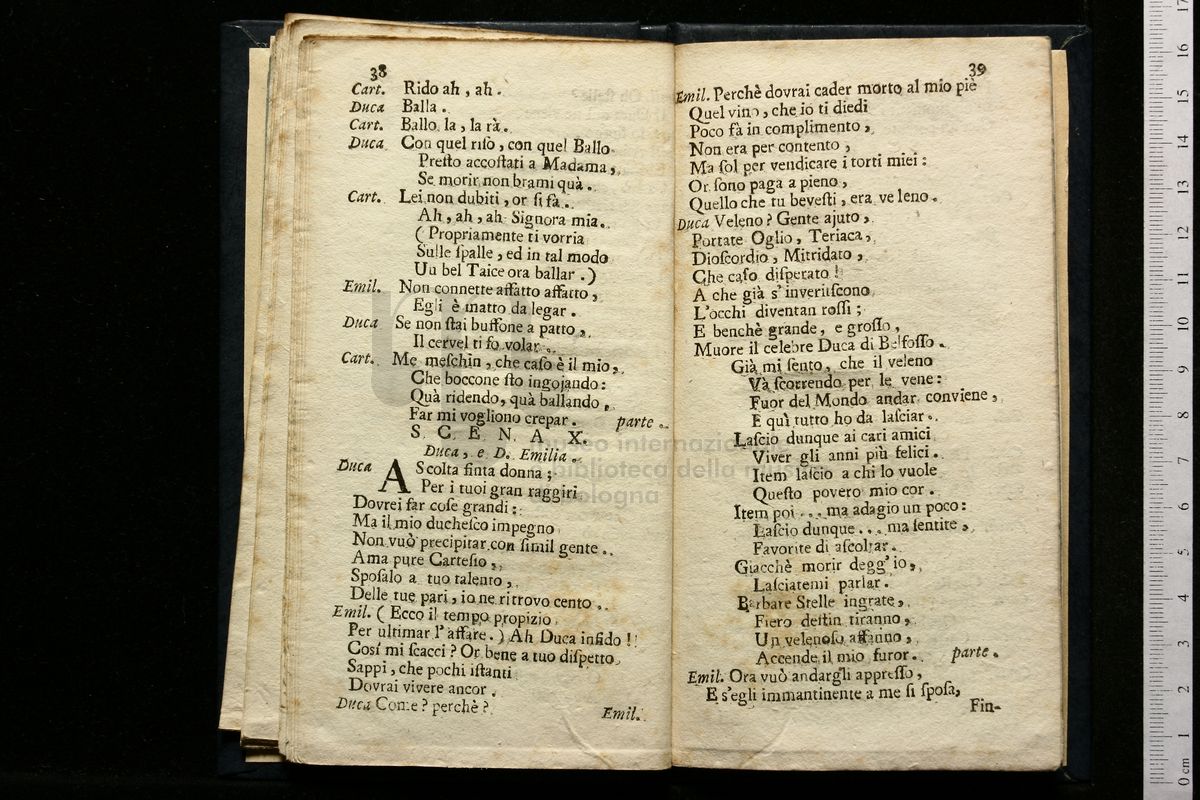 38
Cart. Rido ah, ah.
Duca Balla.
Cart. Ballo la, la rà.
Duca Con quel riſo, con quel Ballo
Preſto accoſtati a Madama,
Se morir non brami quà.
Cart. Lei non dubiti, or ſi fà.
Ah, ah, ah Signora mia.
( Propriamente ti vorria
Sulle ſpalle, ed in tal modo
Un bel Taice ora ballar. )
Emil. Non connette affatto affatto,
Egli è matto da legar.
Duca Se non ſtai buffone a patto,
Il cervel ti fo volar.
Cart. Me meſchin, che caſo è il mio,
Che boccone ſto ingojando:
Quà ridendo, quà ballando
Far mi vogliono crepar. parte.
SCENA X.
Duca, e D. Emilia.
Duca AScolta finta donna;
Per i tuoi gran raggiri
Dovrei far coſe grandi:
Ma il mio ducheſco impegno
Non vuò precipitar con ſimil gente.
Ama pure Carteſio,
Spoſalo a tuo talento,
Delle tue pari, io ne ritrovo cento.
Emil. ( Ecco il tempo propizio
Per ultimar l'affare. ) Ah Duca infido!
Così mi ſcacci? Or bene a tuo diſpetto
Sappi, che pochi iſtanti
Dovrai vivere ancor.
Duca Come? perchè?
Emil.
39
Emil. Perchè dovrai cader morto al mio piè
Quel vino, che io ti diedi
Poco fà in complimento,
Non era per contento,
Ma ſol per vendicare i torti miei:
Or ſono paga a pieno,
Quello che tu beveſti, era veleno.
Duca Veleno? Gente ajuto,
Portate Oglio, Teriaca,
Dioſcordio, Mitridato,
Che caſo diſperato!
A che già s'inveritſcono
L'occhi diventan roſſi;
E benchè grande, e groſſo,
Muore il celebre Duca di Belfoſſo.
Già mi ſento, che il veleno
Và ſcorrendo per le vene:
Fuor del Mondo andar conviene,
E quì tutto ho da laſciar.
Laſcio dunque ai cari amici
Viver gli anni più felici.
Item laſcio a chi lo vuole
Queſto povero mio cor.
Item poi... ma adagio un poco:
Laſcio dunque... ma ſentite,
Favorite di aſcoltar.
Giacchè morir degg'io,
Laſciatemi parlar.
Barbare Stelle ingrate,
Fiero deſtin tiranno,
Un velenoſo affanno,
Accende il mio furor. parte.
Emil. Ora vuò andargli appreſſo,
E s'egli immantinente a me ſi ſpoſa,
Fin-
museo internazionale
e biblioteca della musica
bologna